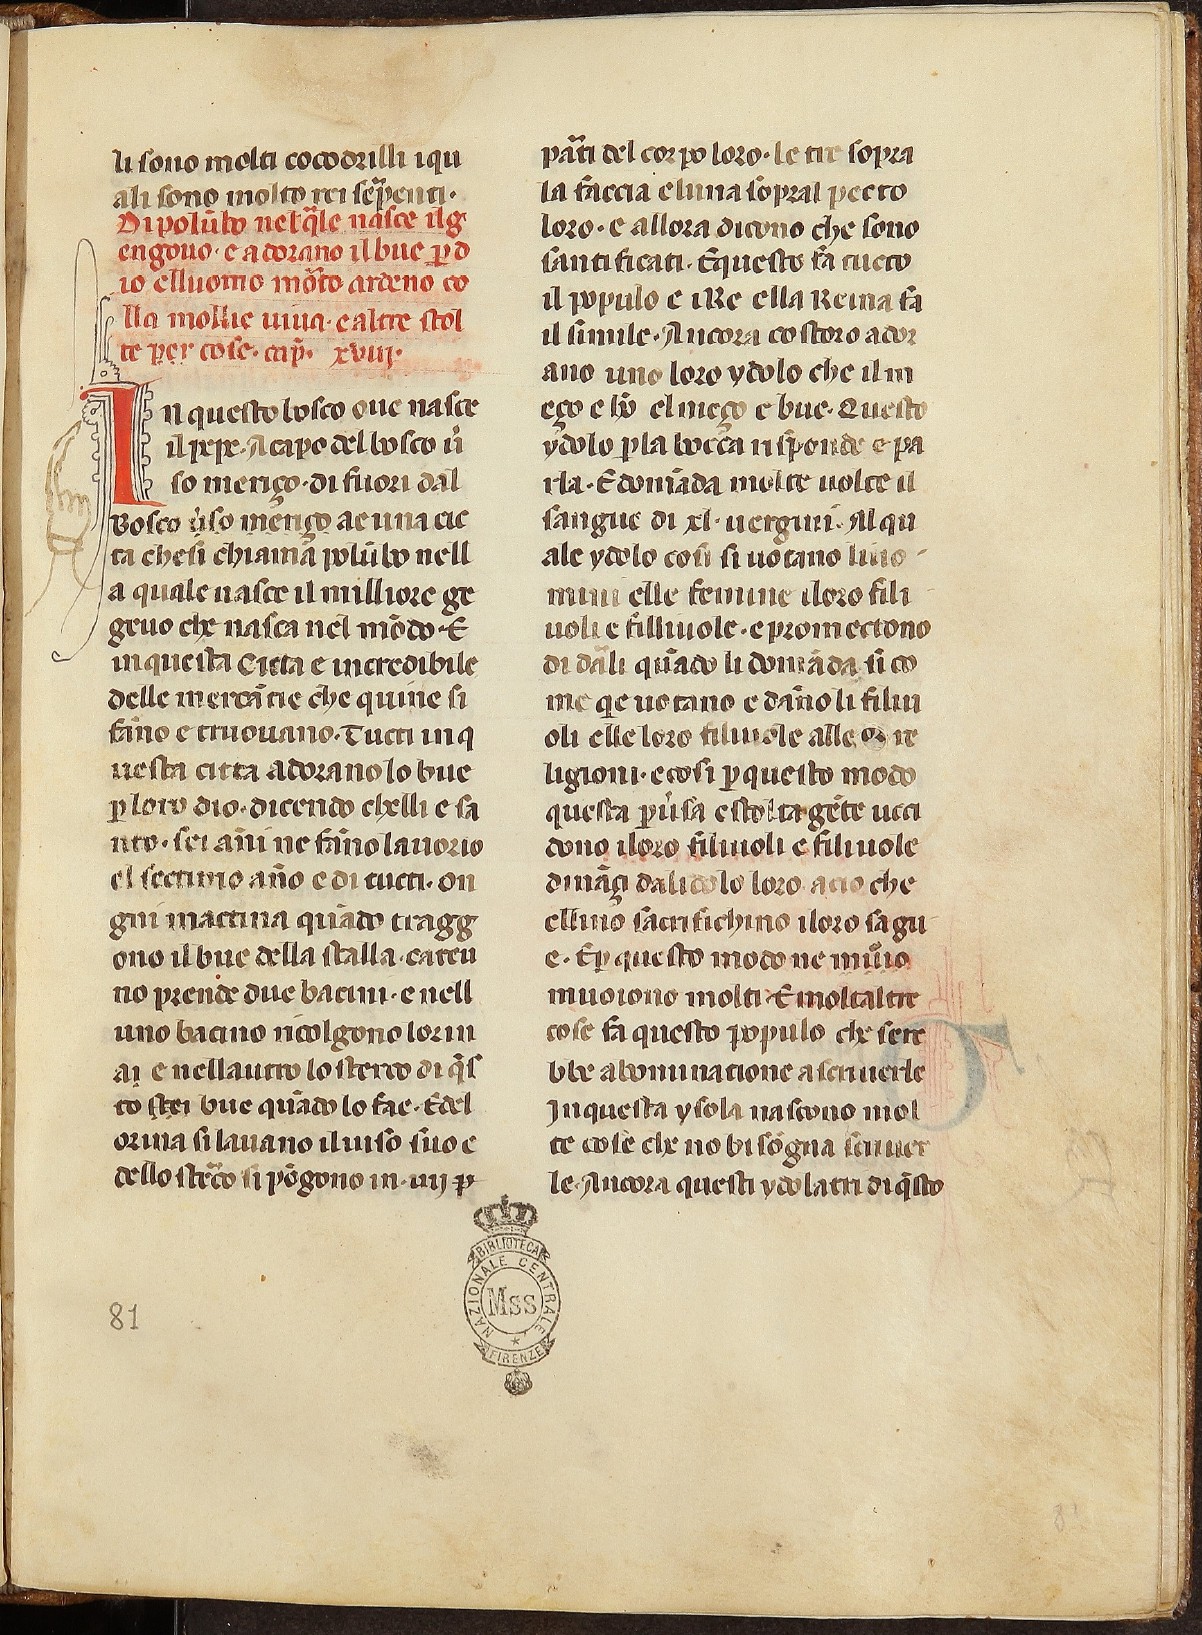 li sono molti cocodrilli iqu
ali sono molto rei sẽpenti·
Di polũbo nel q̃le nasce il g
engouo· e adorano il bue ꝑ d
io elluomo mõto ardeno co
lla mollie uiua· e altre stol
te per cose· cap̃· xviij·
In questo bosco oue nasce
il pepe· A capo del bosco ũ
so merigo· di fuori dal
Bosco ũso merigo ae una cic
ta che si chiamã polũbo nell
a quale nasce il milliore ge
geuo che nasca nel mõdo· E
in questa Citta e incredibile
delle mercãtie che quine si
fãno e truouano· Tucti in q
uesta citta adorano lo bue
ꝑ loro dio· dicendo chelli e sa
nto· sei añi ne fãno lauorio
el sectimo año e di tucti· On
gni mactina quãdo tragg
ono il bue della stalla· cateu
no prende due bacini· e nell
uno bacino ricolgono lorin
ai e nellautro lo sterco di q̃s
to stei bue quãdo lo fae· E del
orina si lauano il uiso suo e
dello stẽco si põgono in· iiij ꝑ
pãti del corpo loro· le tre sopra
la faccia e luna sopral pecto
loro· e allora dicono che sono
santificati· E questo fa tucto
il populo e i Re ella Reina fa
il simile· Ancora costoro ador
ano uno loro ydolo che il m
eço e hõ el meço e bue· Questo
ydolo ꝑ la bocca risponde e pa
rla· E domãda molte uolte il
sangue di xl· uergini· Al qu
ale ydolo cosi si uotano lino
mini elle femine i loro fili
uoli e filliuole· e promectono
di dãli quãdo li domãda si co
me q̃ uotano e dãno li filiu
oli elle loro filiuole alle re
ligioni· e cosi ꝑ questo modo
questa pũsa e stolta gẽte ucci
dono i loro filiuoli e filiuole
dinãçi dalidolo loro acio che
ellino sacrifichino i loro sãgu
e· E ꝑ questo modo ne
muoiono molti· E molt altre
cose fa questo populo che sere
bbe abominatione a scriuerle
In questa ysola nascono mol
te cose che no bisõgna scriuer
le· Ancora questi ydolatri di q̃sto
BIBLIOTECA
NAZIONALE CENTRALE
Mss
FIRENZE
81